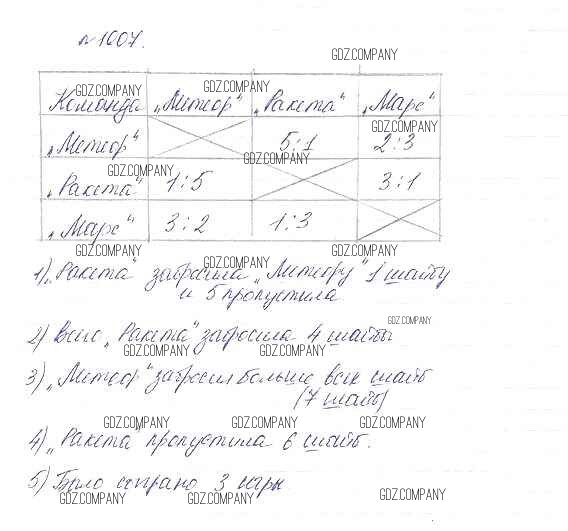 №1007.
GDZ.COMPANY
GDZ.COMPANY GDZ.COMPANY
Команда „Метеор“ „Ракета“ „Марс“
GDZ.COMPANY
„Метеор“ 5:1 2:3
GDZ.COMPANY
GDZ.COMPANY
„Ракета“ 1:5 3:1
„Марс“ 3:2 1:3
GDZ.COMPANY GDZ.COMPANY
GDZ.COMPANY
1) „Ракета“ забросила „Метеору“ 1 шайбу
и 5 пропустила
GDZ.COMPANY
2) Всего „Ракета“ забросила 4 шайбы
GDZ.COMPANY GDZ.COMPANY
3) „Метеор“ забросил больше всех шайб
(7 шайб)
GDZ.COMPANY GDZ.COMPANY GDZ.COMPANY
4) „Ракета пропустила 6 шайб.
5) Было сыграно 3 игры
GDZ.COMPANY GDZ.COMPANY GDZ.COMPANY